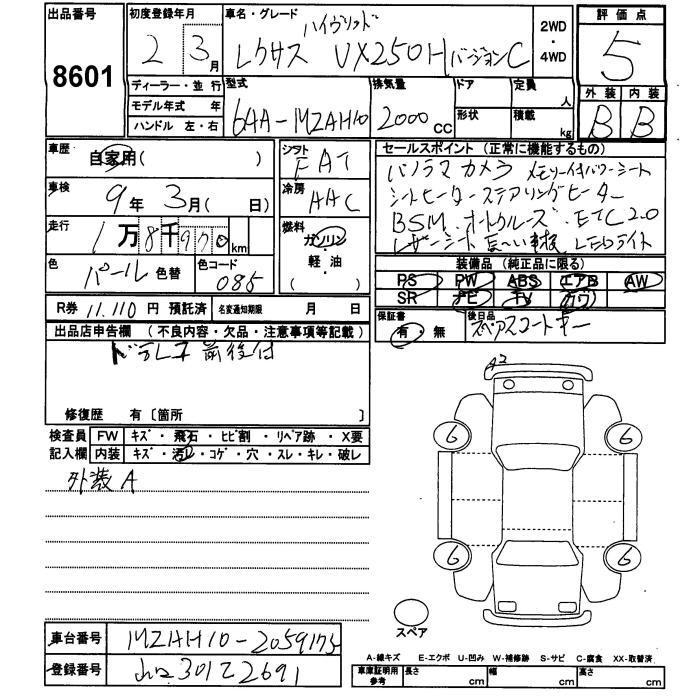 出品番号
8601
初度登録年月
2 3月
車名・グレード
ハイブリッド
レクサス UX250H バージョンC
2WD
・
4WD
評価点
5
外装 内装
B B
ディーラー・並 行
モデル年式 年
ハンドル 左・右
型式
6AA-MZAH10
排気量
2000cc
ドア
形状
定員
人
積載
kg
車歴
自家用( )
車検
9年 3月( 日)
走行
1万8千970km
色
パール 色替
色コード
085
シフト
FAT
冷房
AAC
燃料
ガソリン
軽・油
( )
セールスポイント(正常に機能するもの)
パノラマカメラ メモリー付パワーシート
シートヒーター ステアリングヒーター
BSM オートクルーズ ETC2.0
レザーシート LEDライト
装備品(純正品に限る)
PS PW ABS エアB AW
SR ナビ TV カワ
R券 11,110円 預託済 名変通知期限 月 日
保証書
有・無
後日品
スペアスコートキー
出品店申告欄 (不良内容・欠品・注意事項等記載)
ドラレコ前後付
修復歴 有〔箇所 〕
検査員
記入欄
FW キズ・飛石・ヒビ割・リペア跡・X要
内装 キズ・汚れ・コゲ・穴・スレ・キレ・破レ
外装A
A2
6 6
6 6
スペア
車台番号 MZAH10-2059175
登録番号 301 2691
A-線キズ E-エクボ U-凹み W-補修跡 S-サビ C-腐食 XX-取替済
車庫証明用
参考
長さ cm 幅 cm 高さ cm